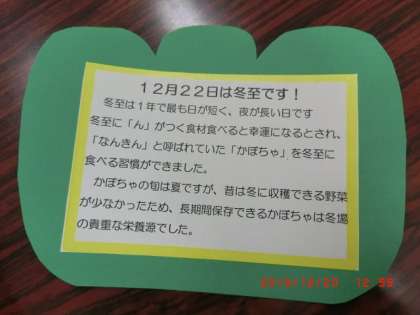 １２月２２日は冬至です！
冬至は１年で最も日が短く、夜が長い日です
冬至に「ん」がつく食材食べると幸運になるとされ、
「なんきん」と呼ばれていた「かぼちゃ」を冬至に
食べる習慣ができました。
かぼちゃの旬は夏ですが、昔は冬に収穫できる野菜
が少なかったため、長期間保存できるかぼちゃは冬場
の貴重な栄養源でした。
12:55